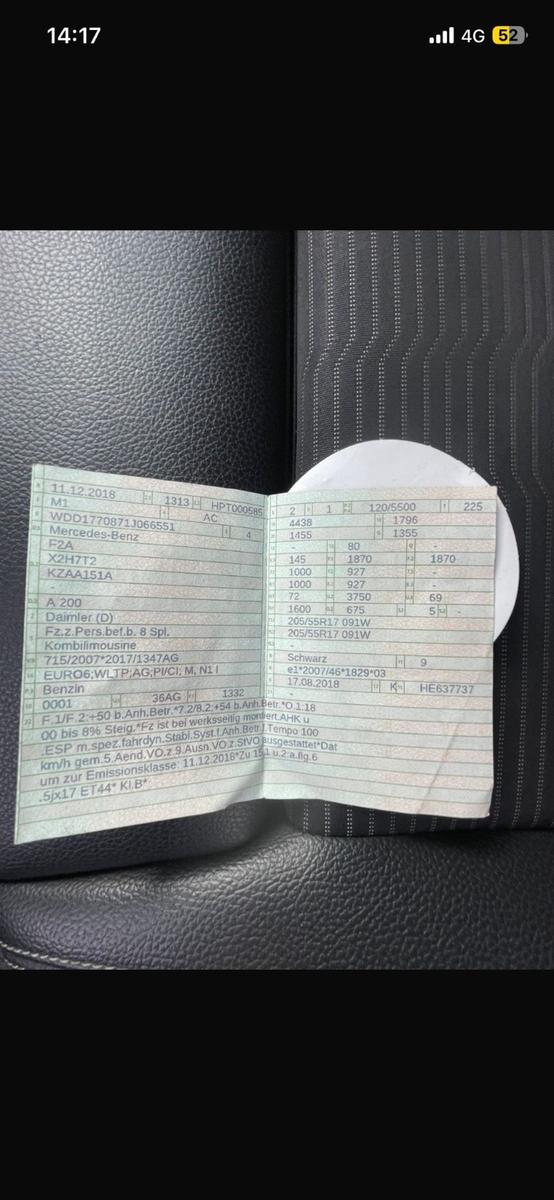 14:17 4G 52
11.12.2018 1313 HPT000585
M1 AC
WDD1770871J066551 4
Mercedes-Benz
F2A
X2H7T2
KZAA151A
-
A 200
Daimler (D)
Fz.z.Pers.bef.b. 8 Spl.
Kombilimousine
715/2007*2017/1347AG
EURO6;WLTP;AG;PI/CI; M, N1 I
Benzin
0001 36AG 1332
2 1 120/5500 225
4438 1796
1455 1355
- 80 -
145 1870 1870
1000 927 -
1000 927 -
72 3750 69
1600 675 5 -
205/55R17 091W
205/55R17 091W
-
Schwarz 9
e1*2007/46*1829*03
17.08.2018 K HE637737
-
F.1/F.2:+50 b.Anh.Betr.*7.2/8.2:+54 b.Anh.Betr.*O.1:18
00 bis 8% Steig.*Fz ist bei werksseitig montiert.AHK u
.ESP m.spez.fahrdyn.Stabi.Syst.f.Anh.Betr.f.Tempo 100
km/h gem.5.Aend.VO.z.9.Ausn.VO.z.StVO ausgestattet*Dat
um zur Emissionsklasse: 11.12.2018*Zu 15.1 u.2:a.flg.6
.5jx17 ET44* Kl.B*